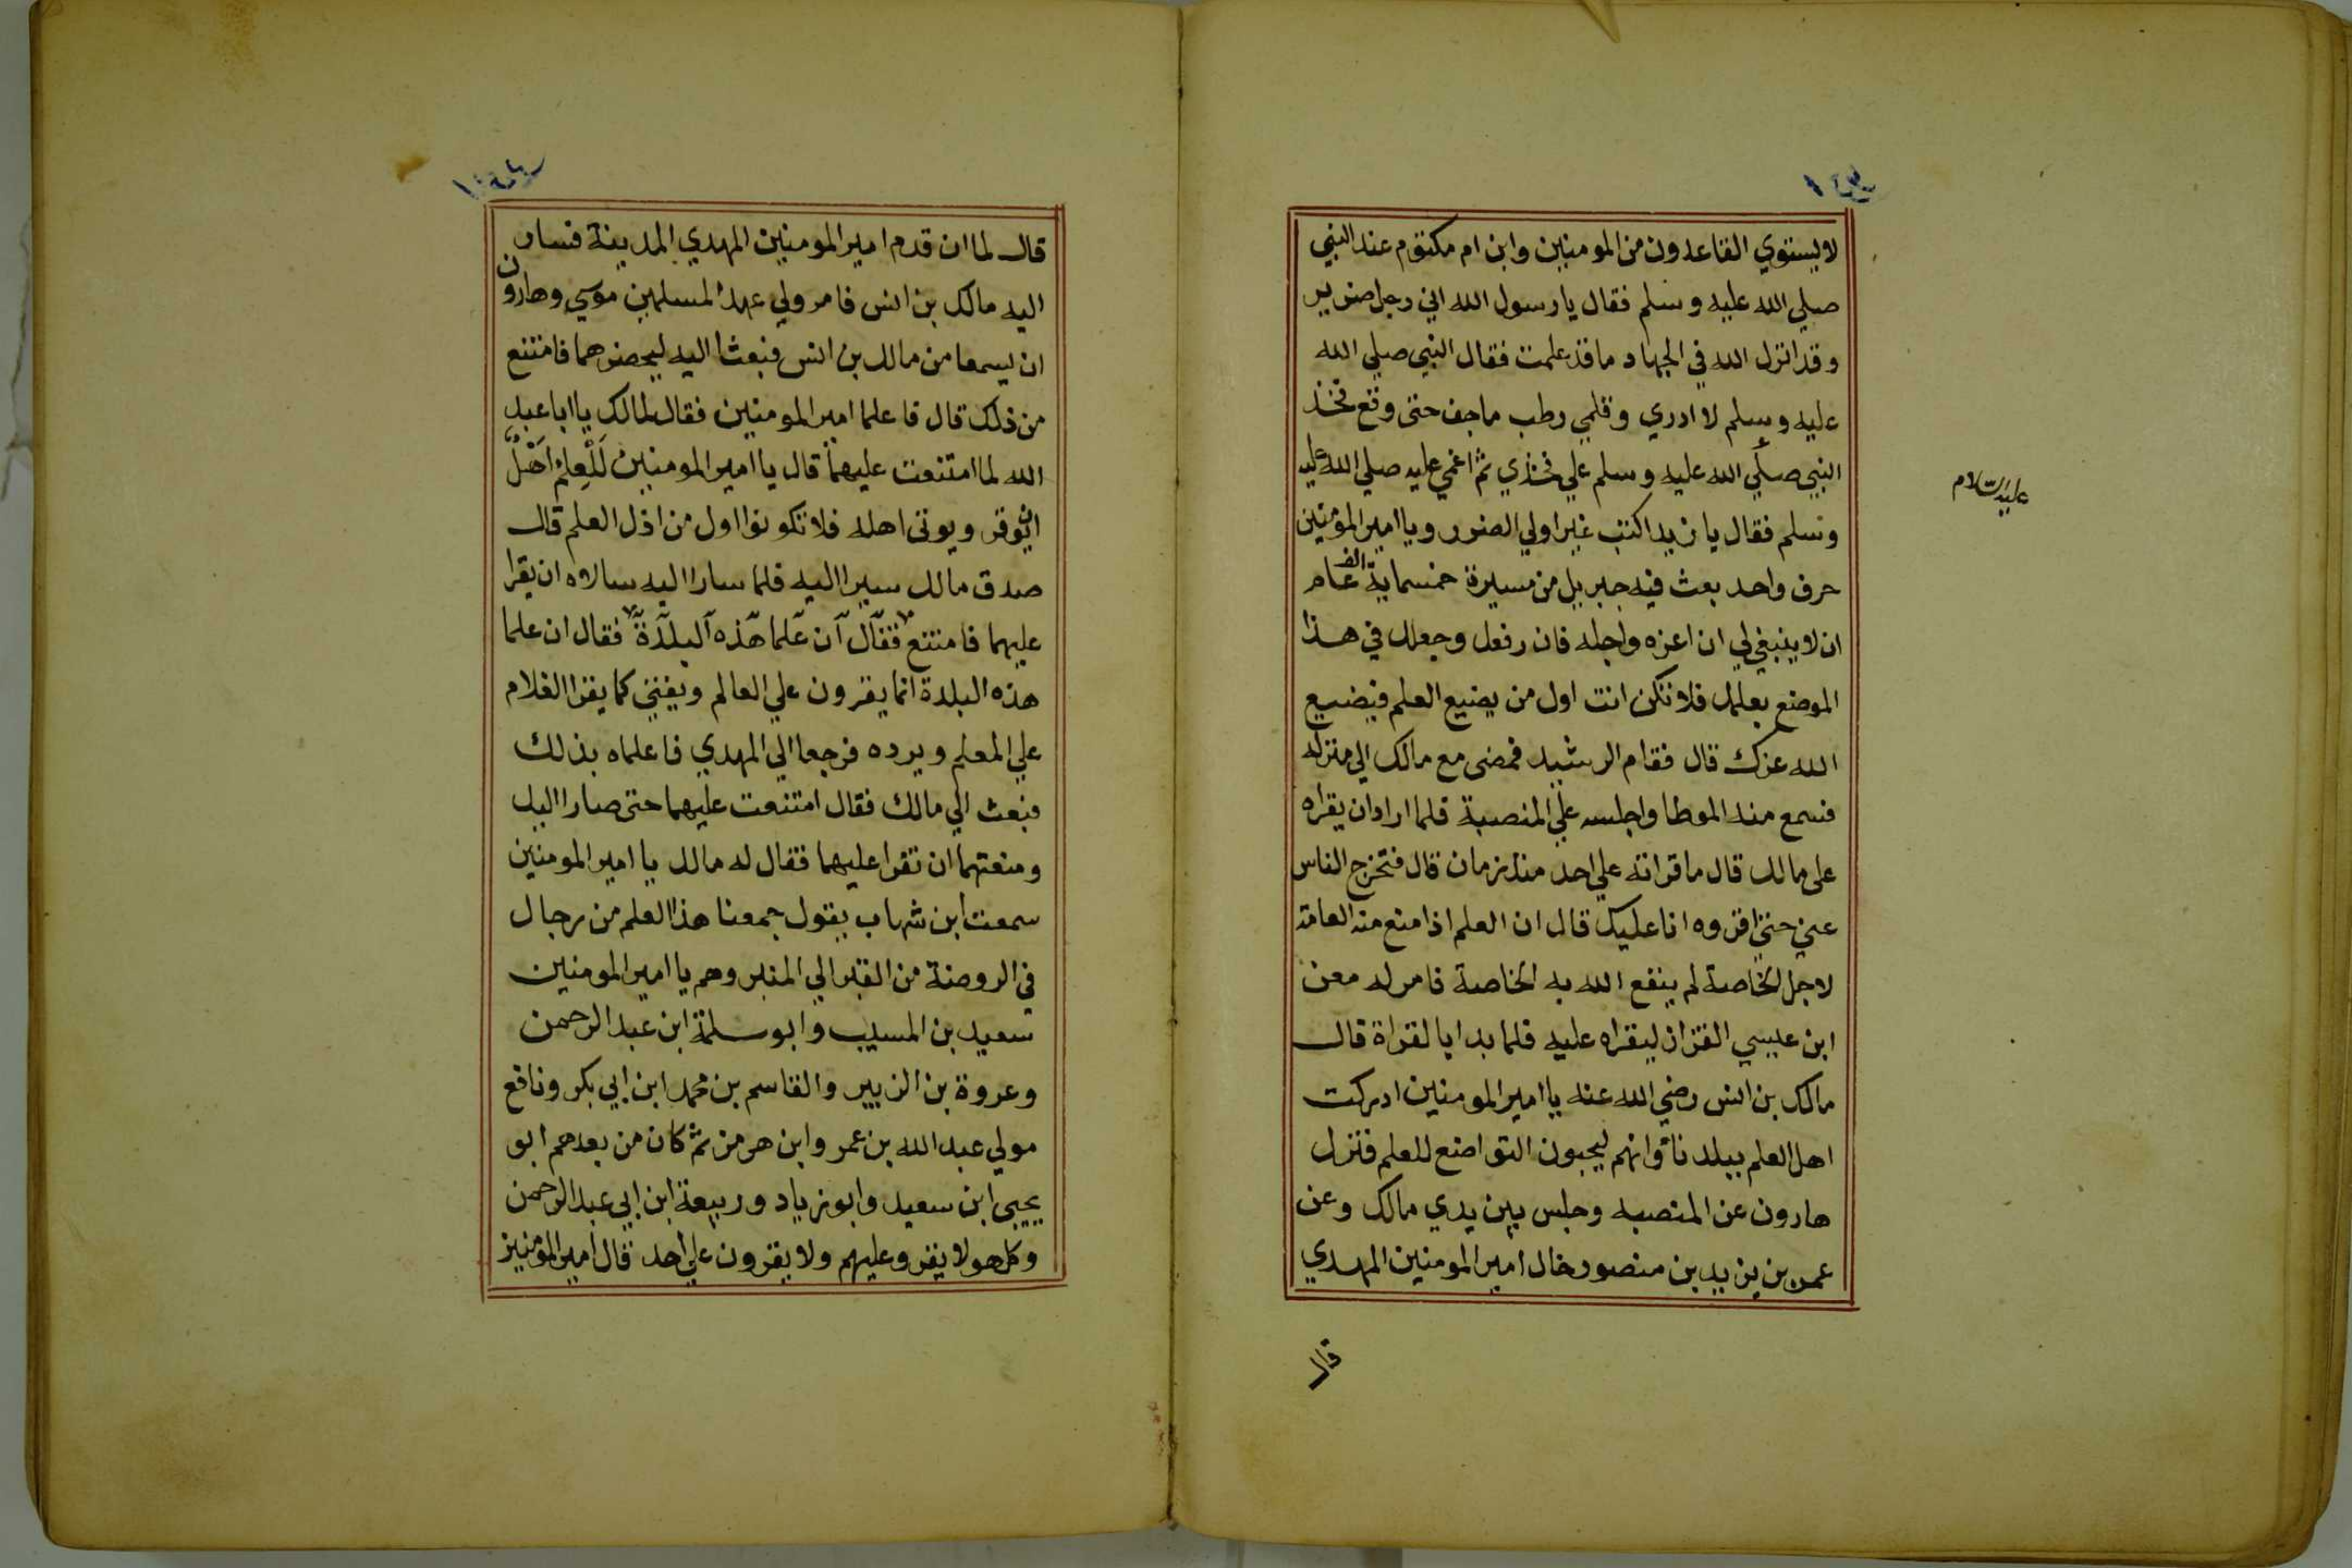 لا يستوي القاعدون من المومنين وابن ام مكتوم عند النبي
صلي الله عليه وسلم فقال يا رسول الله اني رجل ضرير
وقد انزل الله في الجهاد ما قد علمت فقال النبي صلي الله
عليه وسلم لا ادري وقلمي رطب ما جف حتى وقع فخذ
النبي صلي الله عليه وسلم علي فخذي ثم اغمي عليه صلي الله عليه
عليه السلام
وسلم فقال يا زيد اكتب غير اولي الضرر ويا امير المومنين
حرف واحد بعث فيه جبريل من مسيرة خمسماية الف عام
ان لا ينبغي لي ان اعزه واجله فان رفعك وجعلك في هذا
الموضع بعلمك فلا تكن انت اول من يضيع العلم فيضيع
الله عزك قال فقام الرشيد فمضى مع مالك الي منزله
فسمع منه الموطا واجلسه علي المنصبة فلما اراد ان يقراه
على مالك قال ما قراته علي احد منذ زمان قال فتخرج الناس
عني حتى اقروه انا عليك قال ان العلم اذا منع منه العامة
لاجل الخاصة لم ينفع الله به الخاصة فامر له معن
ابن عيسي القزاز ليقراه عليه فلما بدا بالقراة قال
مالك بن انس رضي الله عنه يا امير المومنين ادركت
اهل العلم ببلدنا وانهم ليحبون التواضع للعلم فنزل
هارون عن المنصبه وجلس بين يدي مالك وعن
عمر بن يزيد بن منصور خال امير المومنين المهدي
قال
قال لما ان قدم امير المومنين المهدي المدينة فسار
اليه مالك بن انس فامر ولي عهد المسلمين موسي وهارون
ان يسمعا من مالك بن انس فبعثا اليه ليحضرهما فامتنع
من ذلك قال فاعلما امير المومنين فقال لمالك يا ابا عبد
الله لما امتنعت عليهما قال يا امير المومنين لَلْعِلم اَهْلٌ
ان يوقر ويوتى اهله فلا تكونوا اول من اذل العلم قال
صدق مالك سيرا اليه فلما سارا اليه سالاه ان يقرا
عليهما فامتنع فقال ان علما هذه البلدة فقال ان علما
هذه البلدة انما يقرون علي العالم ويفتي كما يقرا الغلام
علي المعلم ويرده فرجعا الي المهدي فاعلماه بذلك
فبعث الي مالك فقال امتنعت عليهما حتى صارا اليك
ومنعتهما ان تقرا عليهما فقال له مالك يا امير المومنين
سمعت ابن شهاب يقول جمعنا هذا العلم من رجال
في الروضة من القبر الي المنبر وهم يا امير المومنين
سعيد بن المسيب وابو سلمة ابن عبد الرحمن
وعروة بن الزبير والقاسم بن محمد ابن ابي بكر ونافع
مولي عبد الله بن عمر وابن هرمز ثم كان من بعدهم ابو
يحيى ابن سعيد وابو زياد وربيعة ابن ابي عبد الرحمن
وكل هولا يقر وعليهم ولا يقرون علي احد قال امير المومنين